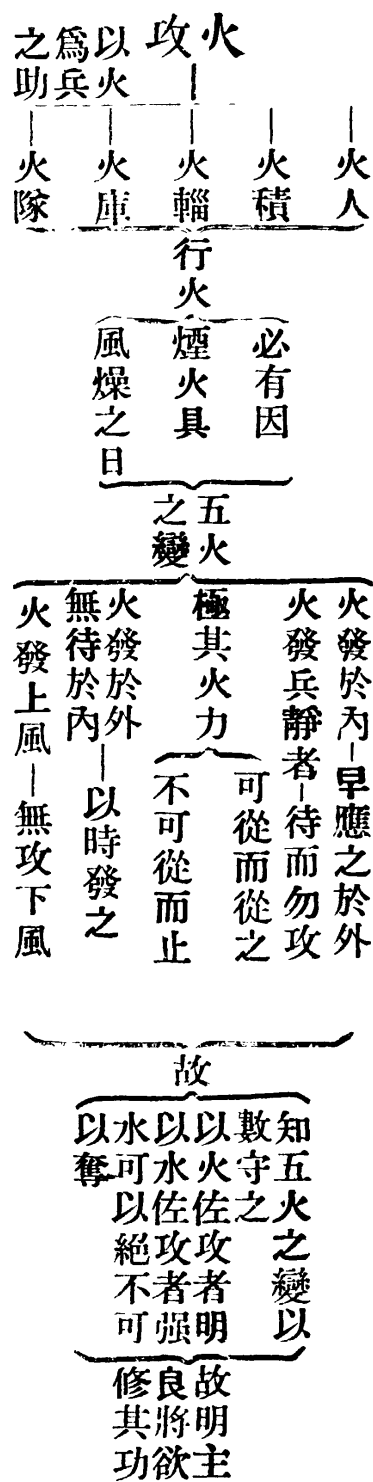 火攻
以火
爲兵
之助
火人
火積
火輜
火庫
火隊
行火
必有因
煙火具
風燥之日
五火
之變
火發於內
早應之於外
火發兵靜者
待而勿攻
極其火力
可從而從之
不可從而止
火發於外
無待於內
以時發之
火發上風
無攻下風
故
知五火之變以
數守之
以火佐攻者明
以水佐攻者强
水可以絕不可
以奪
故明主
良將欲
修其功